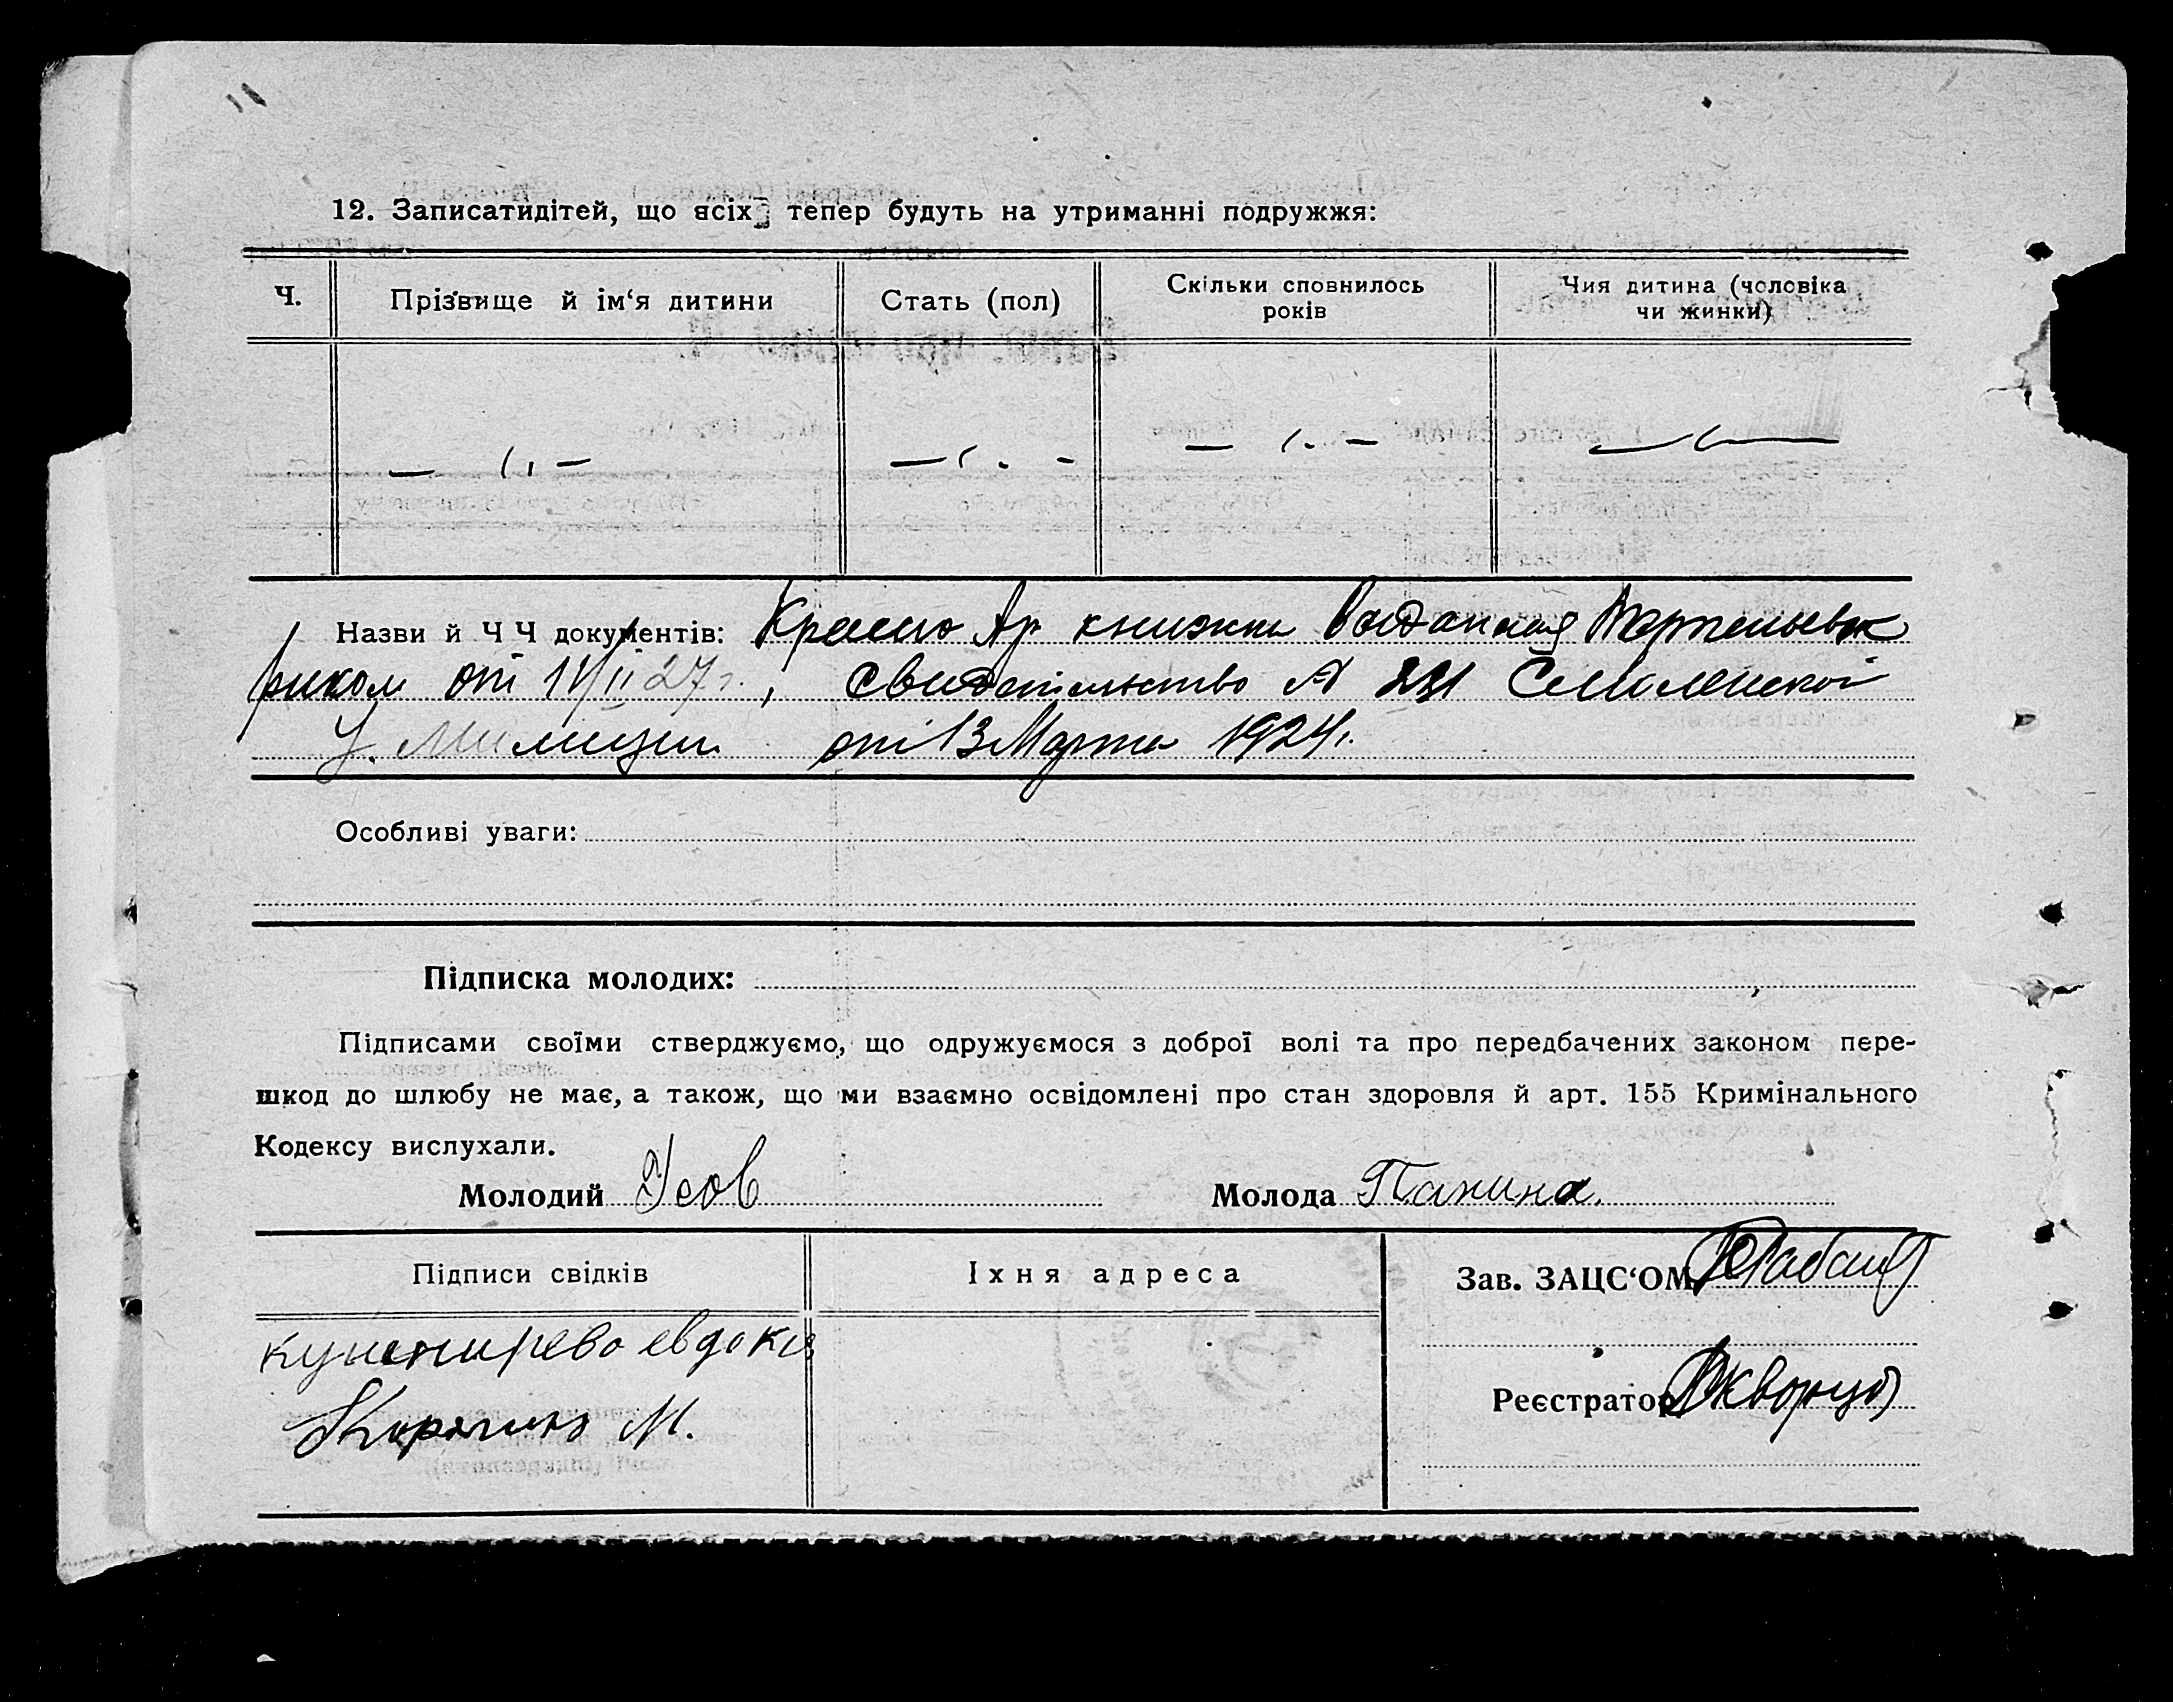 12. Записатидітей, що всіх тепер будуть на утриманні подружжя:
Ч. Прізвище й ім‘я дитини Стать (пол) Скільки сповнилось років Чия дитина (чоловіка чи жинки)
Назви й Ч Ч документів: Красно Ар книжка выданная
риком от 27 г., свидетельство № Смоленской
У. Милиции от 13 Марта 1924 г.
Особливі уваги:
Підписка молодих:
Підписами своїми стверджуємо, що одружуємося з доброї волі та про передбачених законом пере-
шкод до шлюбу не має, а також, що ми взаємно освідомлені про стан здоровля й арт. 155 Кримінального
Кодексу вислухали.
Молодий Усов Молода Панина.
Підписи свідків Їхня адреса Зав. ЗАЦС‘ОМ
евдоки
М.
Реєстратор